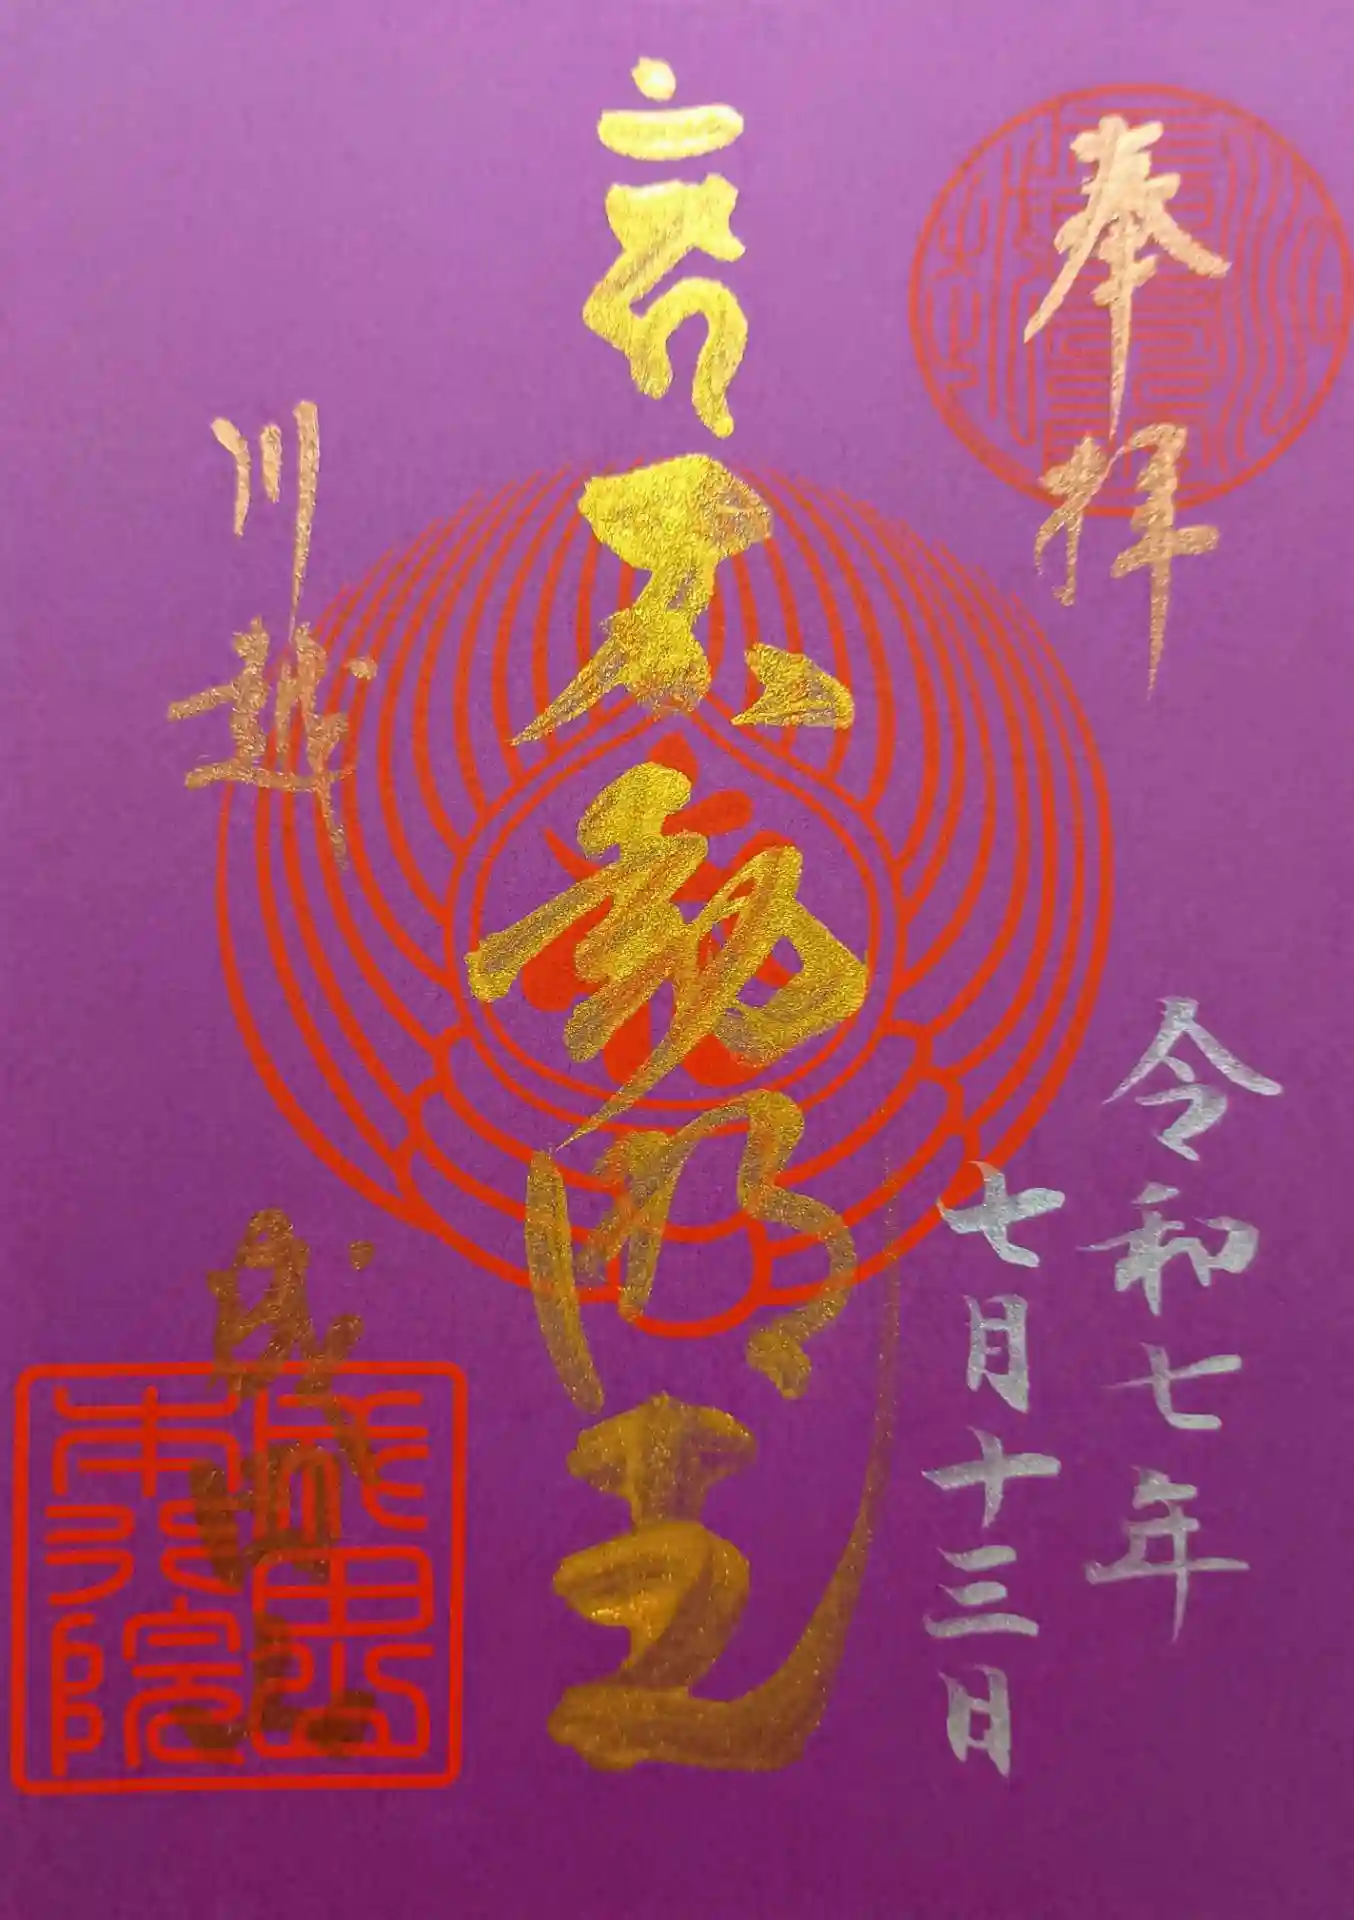 奉拝
令和七年
七月十三日
不動明王
川越 成田山
成田山
本行院